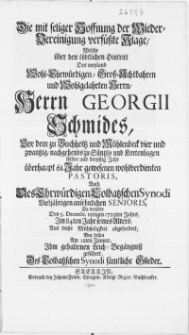 Die mit seliger Hoffnung der Wieder-
Vereinigung versüßte Klage,
Welche
über den tödtlichen Hintritt
Des weyland
Wohl-Ehrwürdigen, Groß-Achtbahren
und Wohlgelahrten Herrn,
Herrn GEORGII
Schmides,
Bey dem zu Buchholtz und Mühlenbeck vier und
zwantzig, nachgehends zu und Kortenhagen
sieben und dreyßig Jahr
überhaupt 61 Jahr gewesenen wohlverdienten
PASTORIS,
Auch
Des Ehrwürdigen Colbatzschen Synodi
Vieljährigen ansehnlichen SENIORIS,
Da derselbe
Den 7. Decembr. vorigen Jahres,
Im 84ten Jahr seines Alters,
Aus dieser Mühseligkeit abgefordert,
Bey dessen
Am Januar.
Ihm gehaltenen Leich-Begängniß
geführet,
Des Colbatzschen Synodi sämtliche Glieder.
STETTIN,
Gedruckt bey Königl. Regier. Buchdrucker.